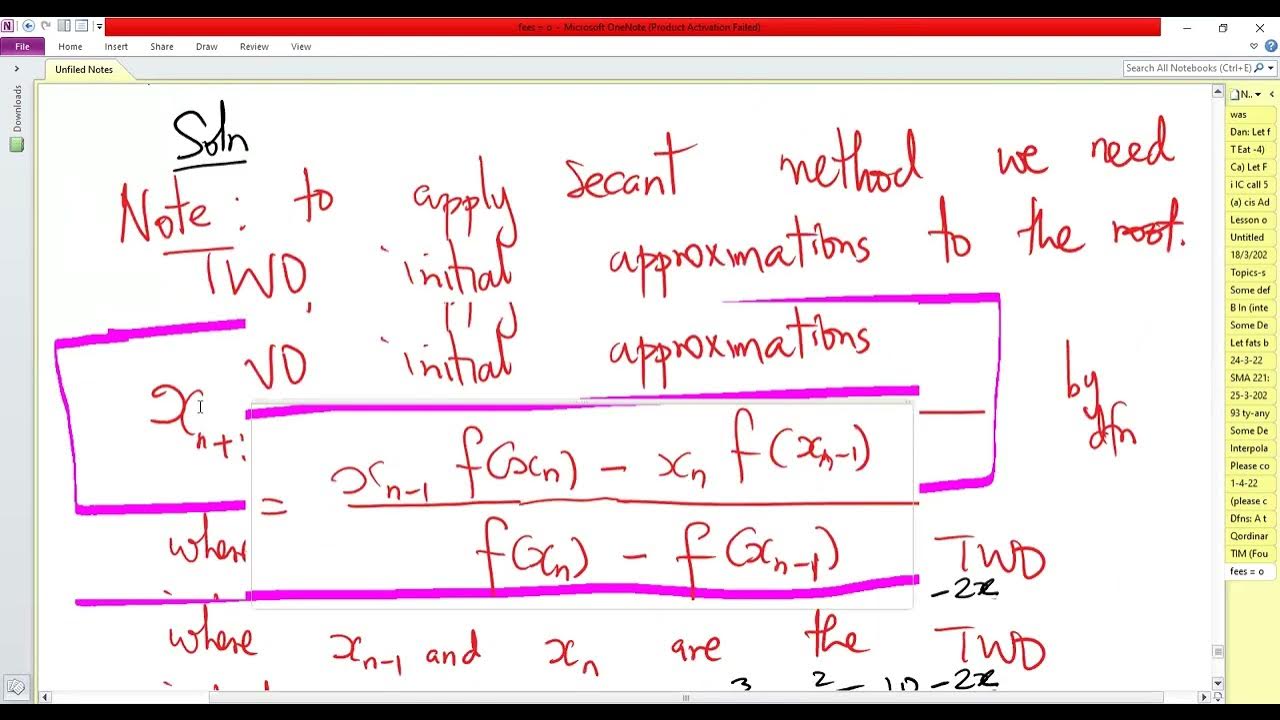 fees = o - Microsoft OneNote (Product Activation Failed)
File Home Insert Share Draw Review View
Unfiled Notes
Search All Notebooks (Ctrl+E)
Downloads
Soln
Note: to apply secant method we need
TWO initial approximations to the root.
VO initial approximations
x_{n+1}
= \frac{x_{n-1} f(x_n) - x_n f(x_{n-1})}{f(x_n) - f(x_{n-1})}
by
dfn
where TWO
-2x
where x_{n-1} and x_n are the TWO
3 2 - 10 -2x
N..
was
Dan: Let f
T Eat -4)
Ca) Let F
i IC call 5
(a) cis Ad
Lesson o
Untitled
18/3/202
Topics-s
Some def
B In (inte
Some De
Let fats b
24-3-22
SMA 221:
25-3-202
93 ty-any
Some De
Interpola
Please co
1-4-22
(please c
Dfns: A t
Qordinar
TIM (Fou
fees = o